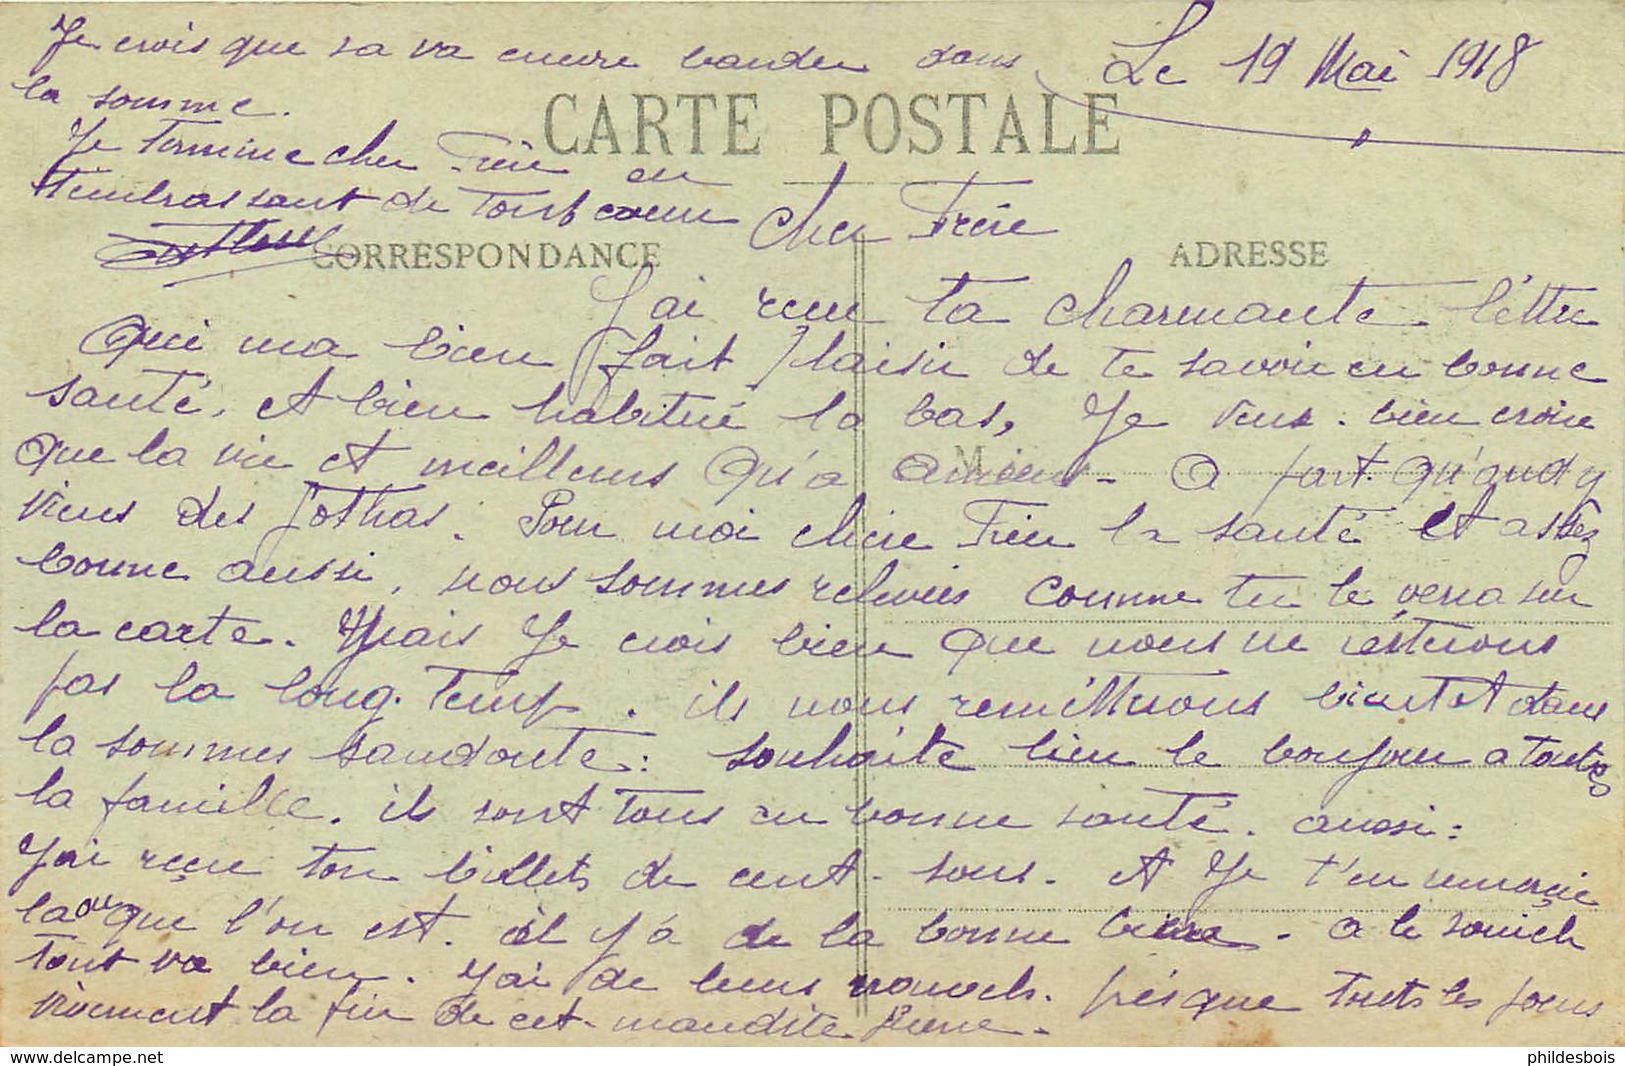 Le 19 Mai 1918
CARTE POSTALE
CORRESPONDANCE
ADRESSE
Cher Frere
J'ai recu ta charmante lettre
Qui ma bien fait plaisir de te savoir en bonne
santé, et bien habitué la bas, Je veux bien croire
que la vie et meilleurs Qu'a Amiens - a part qu'and y
viens des Gothas. Pour moi chere Frere la santé et assez
bonne aussi, nous sommes relevées comme tu le verra sur
la carte. Mais Je crois bien que nous ne resterons
pas la long temp. ils nous remetterons bientot dans
la sommes sandoute: souhaite bien le bonjour a toutes
la famille. ils sont tous en bonne santé. aussi:
J'ai reçu ton billets de cent sous. et Je t'en remercie
la ou que l'on est. il y'a de la bonne biere - a le souich
tout va bien. J'ai de leurs nouvels. presque touts les jours
vivement la fin de cet maudite guerre.
Je crois que sa va encore barder dans
la somme.
Je termine cher Frere en
t'embrassant de tout coeur
phildesbois